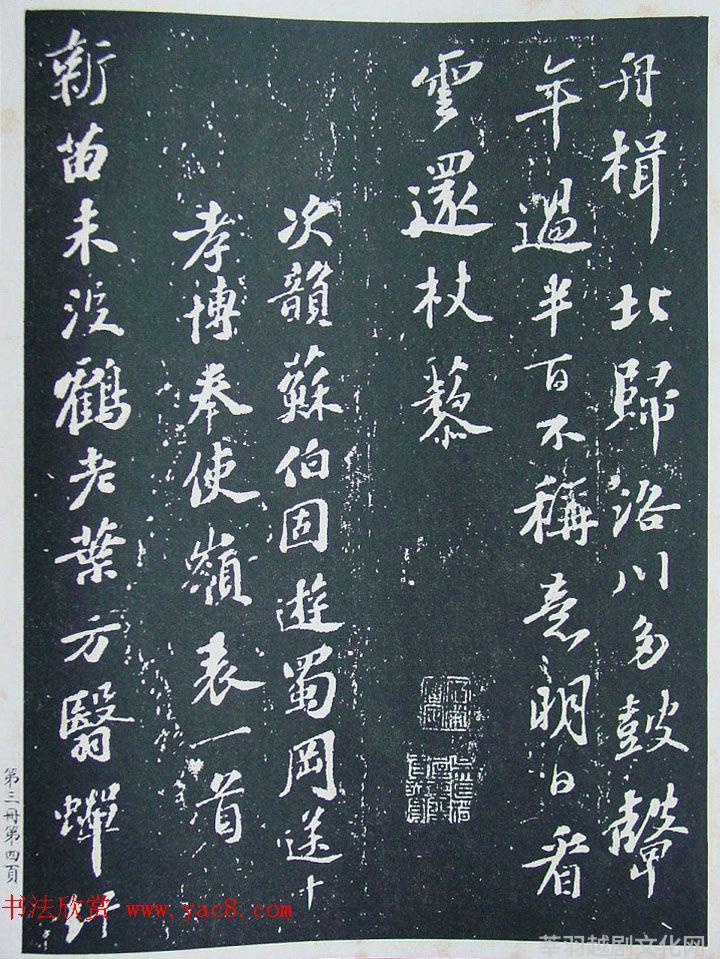 舟楫北歸洛川多鼓鼙
年過半百不稱意明日看
雲還杖藜
次韻蘇伯固遊蜀岡送
孝博奉使嶺表一首
新苗未沒鶴老葉方翳蟬
第三冊第四頁
书法欣赏 www.yac8.com
莘羽越剧文化网